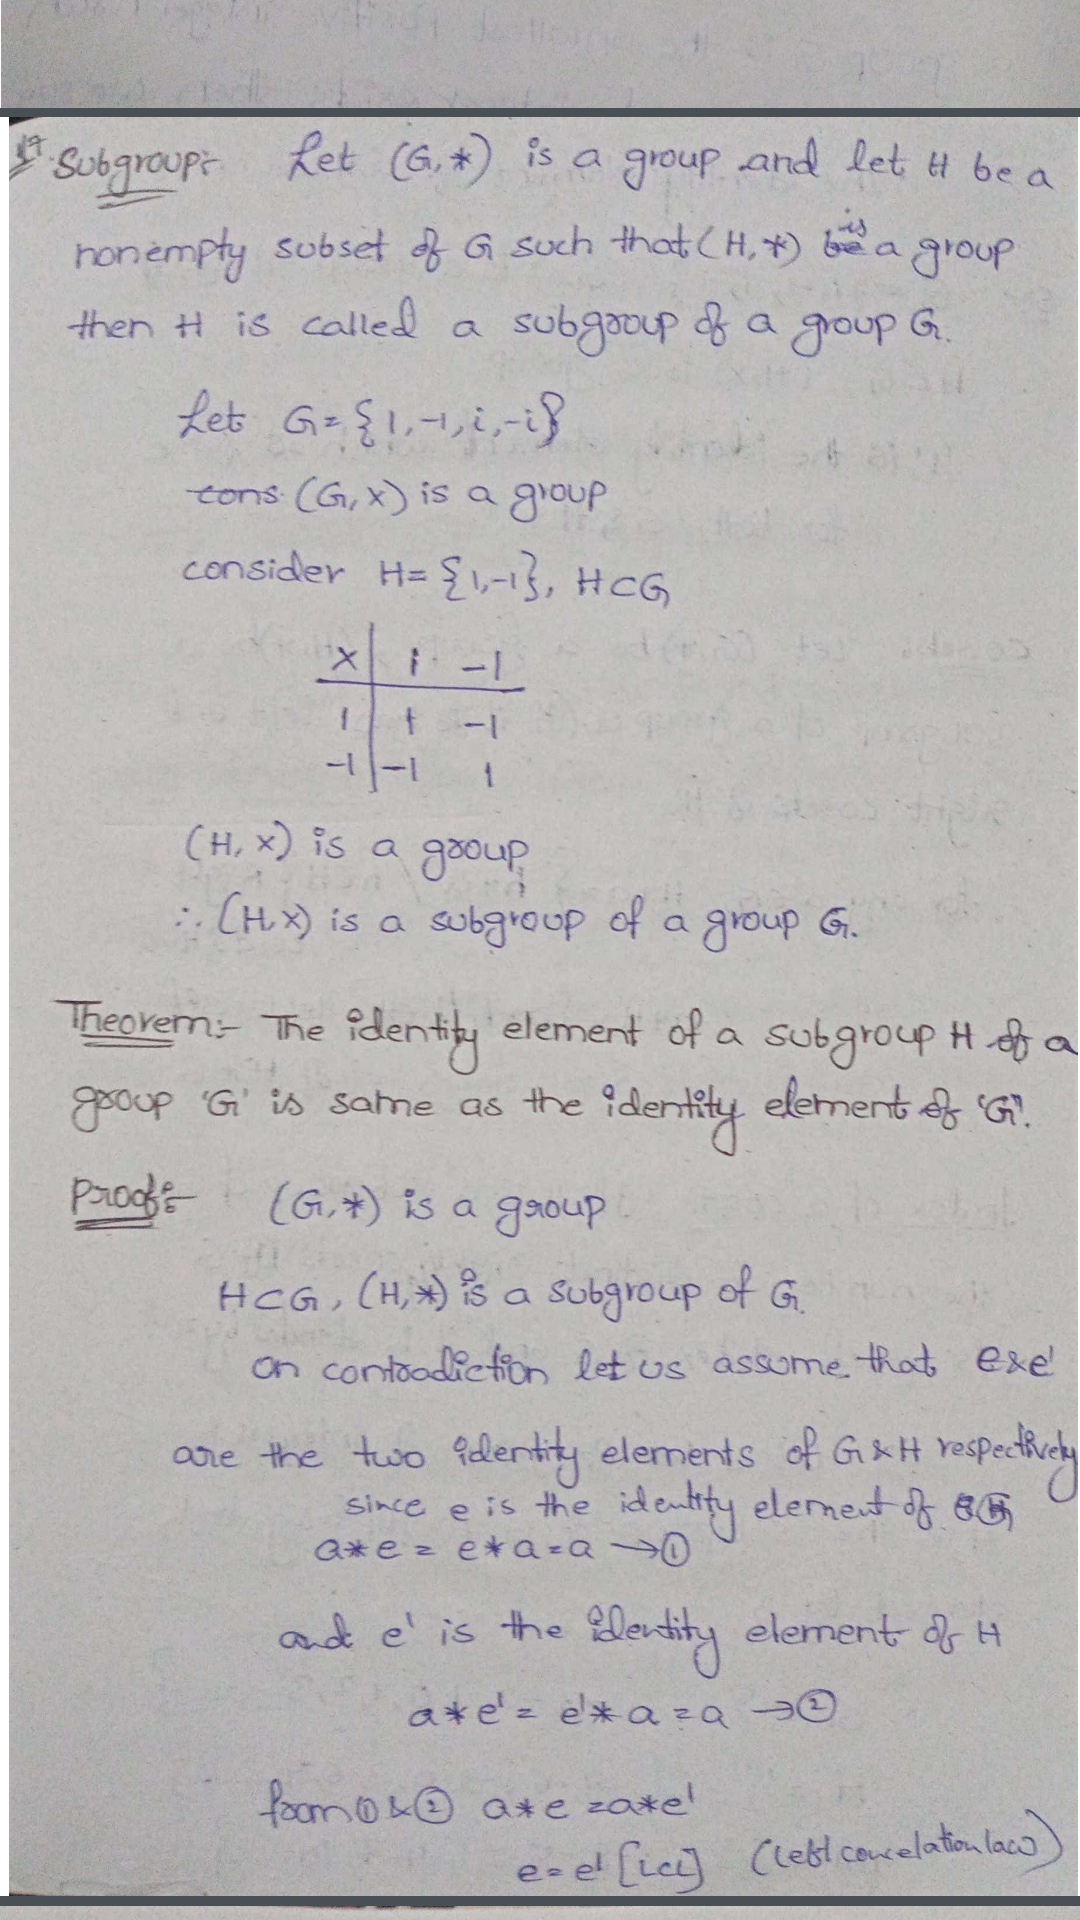 Subgroup:- Let (G,*) is a group and let H be a
nonempty subset of G such that (H,*) is a group
then H is called a subgroup of a group G.
Let G={1,-1,i,-i}
(G,x) is a group
consider H={1,-1}, H⊂G
x | 1 -1
1 | 1 -1
-1 | -1 1
(H,x) is a group
∴ (H,x) is a subgroup of a group G.
Theorem:- The identity element of a subgroup H of a
group 'G' is same as the identity element of 'G'.
Proof:- (G,*) is a group
H⊂G, (H,*) is a subgroup of G.
on contradiction let us assume that e & e'
are the two identity elements of G & H respectively
since e is the identity element of G
a*e = e*a = a → ①
and e' is the identity element of H
a*e' = e'*a = a → ②
from ① & ② a*e = a*e'
e=e' [lcl] (left concelation law)